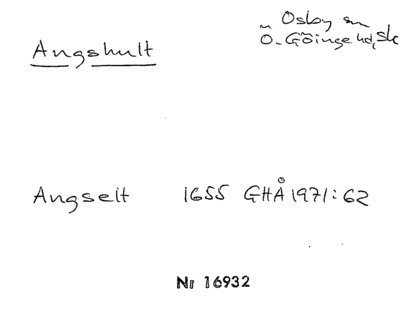 Angshult
Osby sn
Ö. Göinge hd, Sk
Angselt 1655 GHÅ 1971:62
Nr 16932